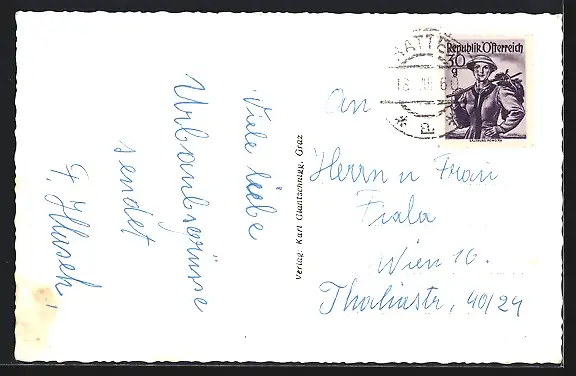 Viele liebe
Urlaubsgrüsse
sendet
Verlag: Karl Gluantschnigg, Graz
Republik Österreich
30
g
RATTE
18
60
* a *
An
Herrn u Frau
Fiala
Wien 16.
Thaliastr, 40/24